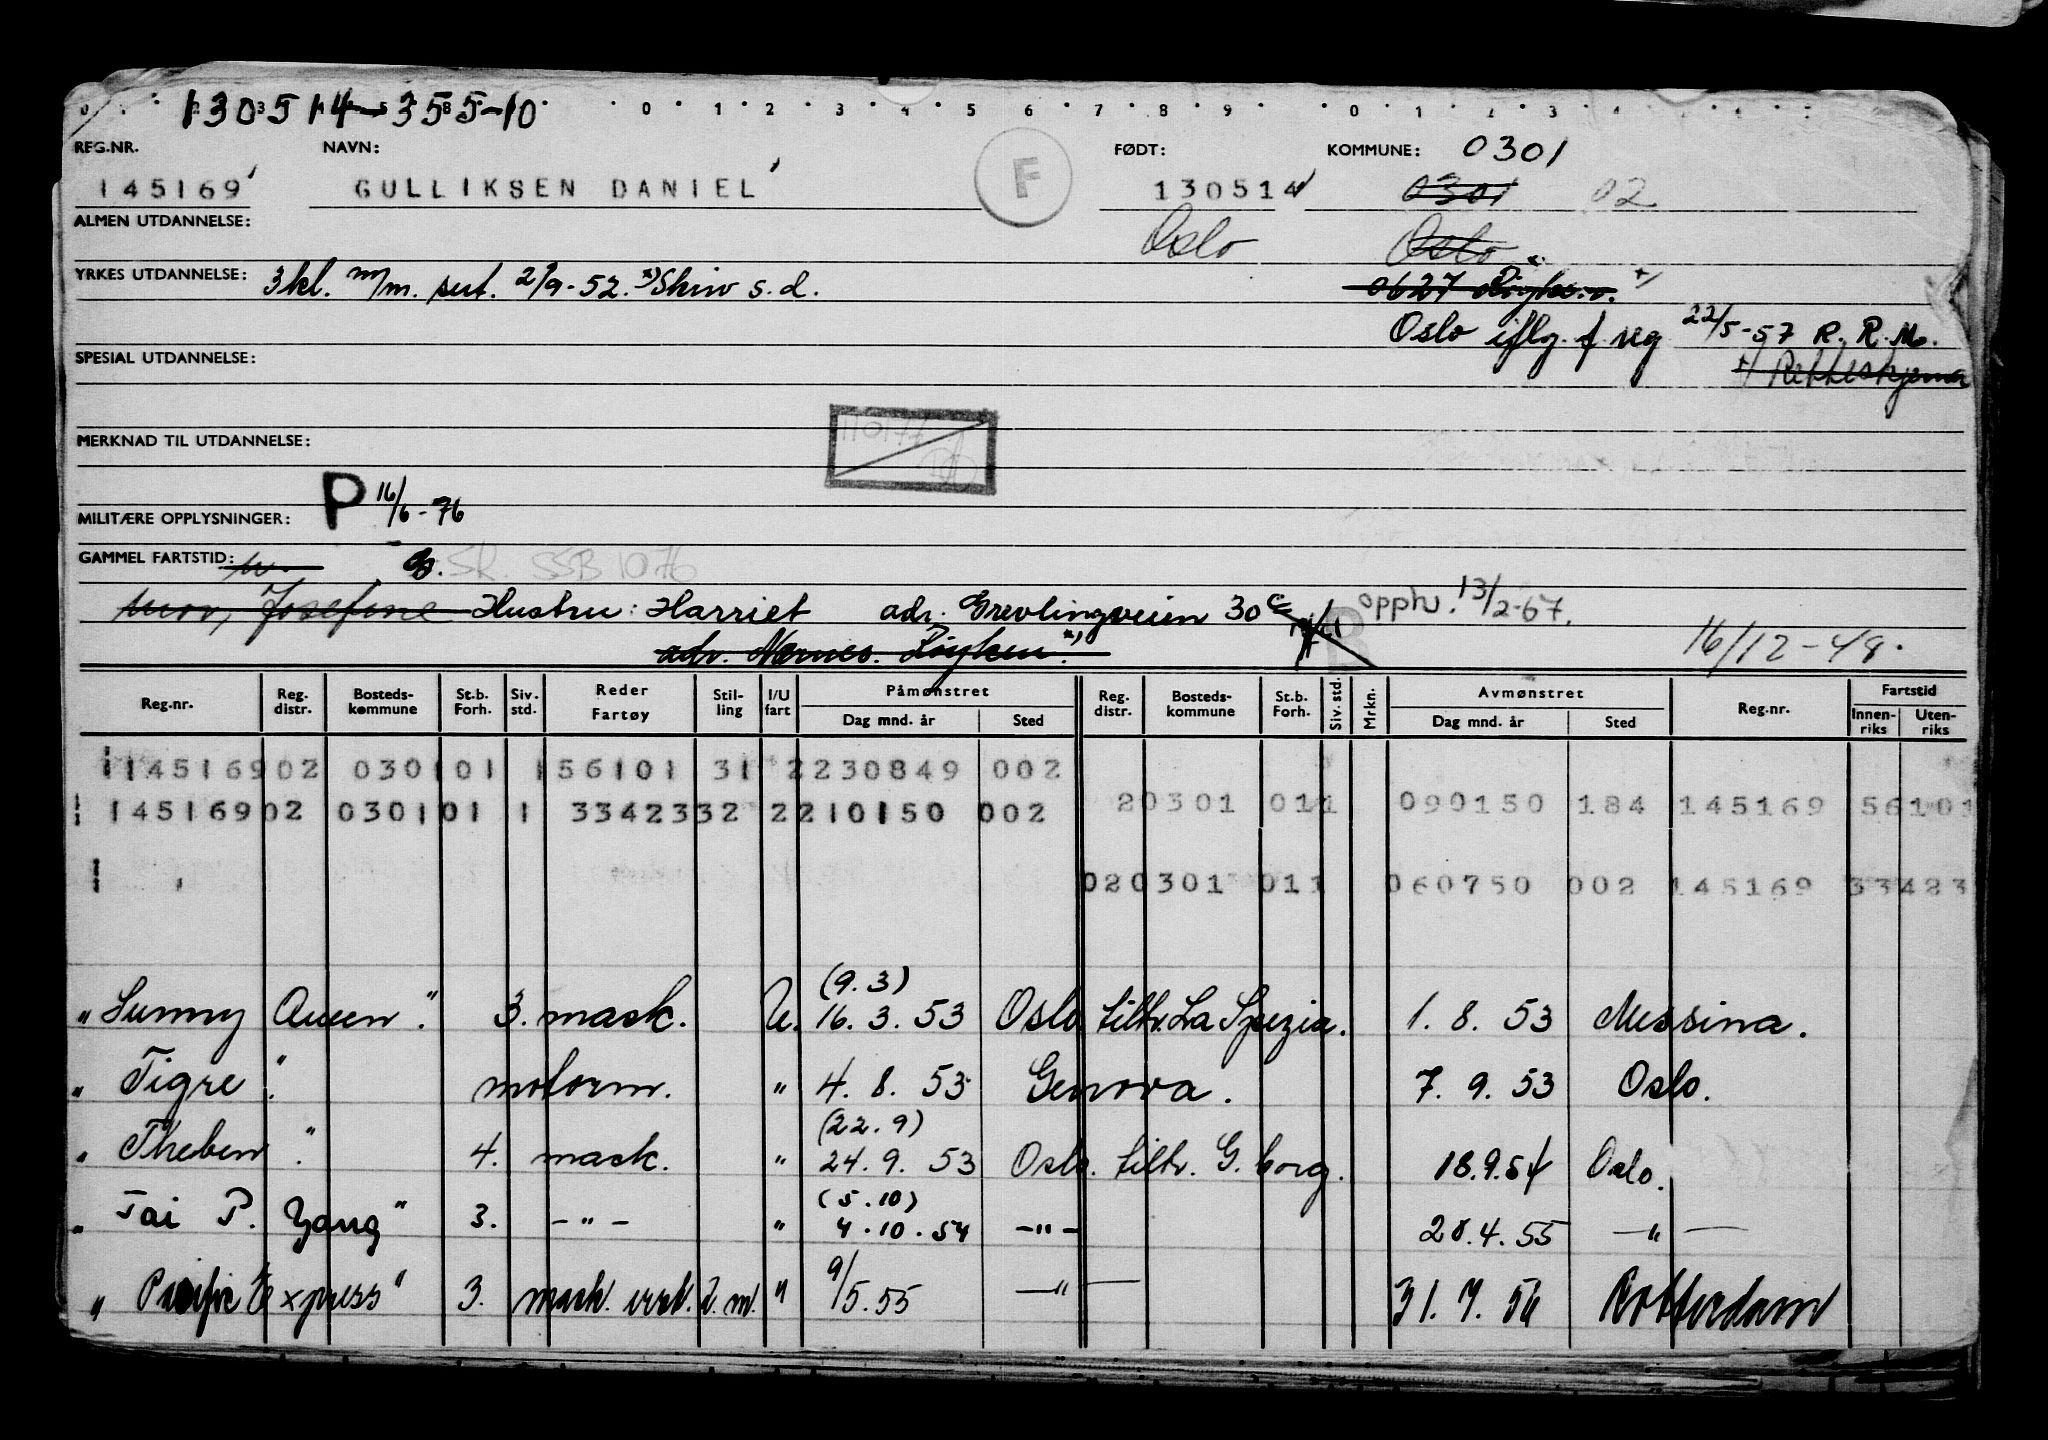 130514-35510
0 1 2 3 4 5 6 7 8 9 0 1 2 3
REG.NR. NAVN: FØDT: KOMMUNE: 0301
145169 GULLIKSEN DANIEL F 130514 0301 02
ALMEN UTDANNELSE: Oslo Oslo
YRKES UTDANNELSE: 3 kl. m/m. sert. 2/9-52. x) Skiw s.d. 0627 Røyken
Oslo iflg. f. reg 22/5-57 R.R.M.
SPESIAL UTDANNELSE: Rettleskjema
MERKNAD TIL UTDANNELSE: 110177
MILITÆRE OPPLYSNINGER: P 16/6-76
GAMMEL FARTSTID: SK. SSB 1076
mor, Josefine Hustru: Harriet adr. Grevlingveien 30 c B opphv. 13/2-67.
adr. Nærnes. Røyken. x) 16/12-48.
Reg.nr. Reg. distr. Bosteds-kommune St.b. Forh. Siv. std. Reder Fartøy Stil-ling I/U fart Påmønstret Dag mnd. år Sted Reg. distr. Bosteds-kommune St.b. Forh. Siv. std. Mrkn. Avmønstret Dag mnd. år Sted Reg.nr. Fartstid Innen-riks Uten-riks
1 145169 02 0301 01 1 56101 31 2 230849 002
1 145169 02 0301 01 1 33423 32 2 210150 002 20301 011 090150 184 145169 56101
1 020301 011 060750 002 145169 33423
(9.3)
"Sunny Queen". 3. mask. U. 16.3.53 Oslo tiltr. La Spezia. 1.8.53 Messina.
"Tigre". motorm. " 4.8.53 Genova. 7.9.53 Oslo.
(22.9)
"Theben". 4. mask. " 24.9.53 Oslo. tiltr. G.borg. 18.9.54 Oslo.
(5.10)
"Tai P. Yang" 3. -"- " 4.10.54 -"- 28.4.55 -"-
"Pacific Express" 3. mask. 2. m. " 9/5.55 -"- 31.7.56 Rotterdam